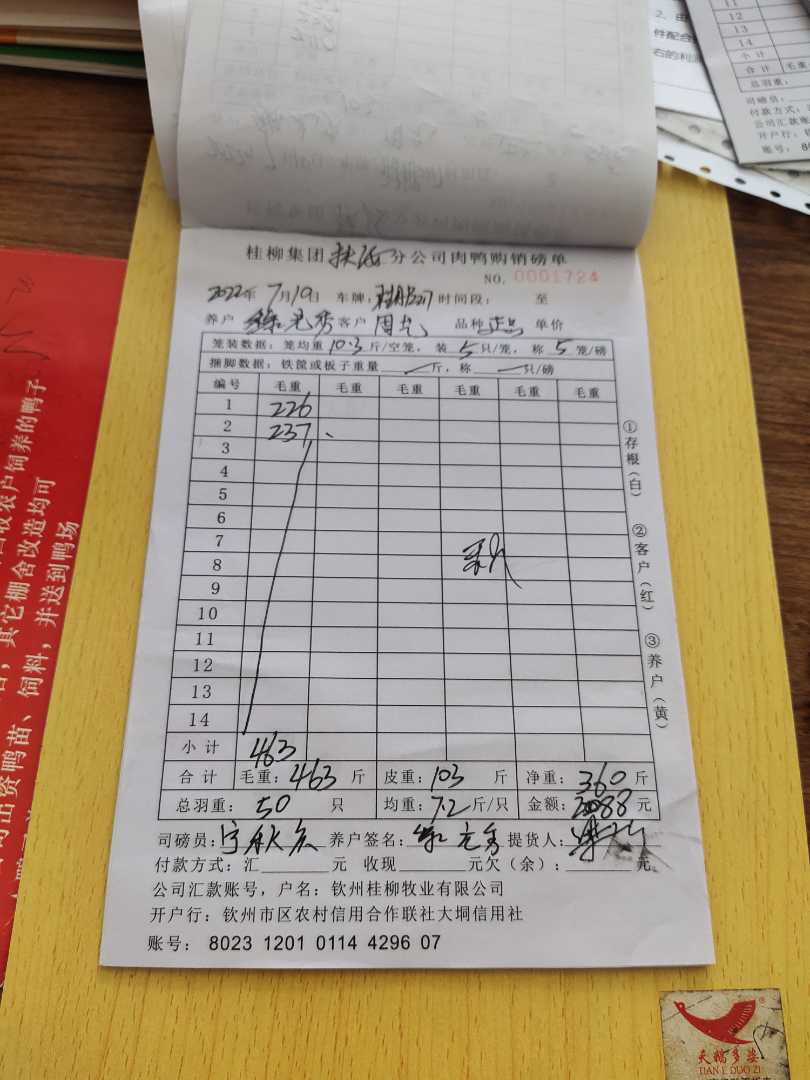 2、由
件配合
右的利润
11
12
13
14
小计
合计 毛重
总羽重：
司磅员：
付款方式：汇
公司汇款账
开户行：
账号：8
桂柳集团 扶 分公司肉鸭购销磅单
NO. 0001724
2022年 7月19日 车牌： 时间段： 至
养户 秀 客户 周 品种 正品 单价
笼装数据：笼均重 10.3 斤/空笼，装 5 只/笼，称 5 笼/磅
捆脚数据：铁筐或板子重量 斤，称 只/磅
编号 毛重 毛重 毛重 毛重 毛重 毛重
1 226
2 237
3
4
5
6
7
8
9
10
11
12
13
14
小计 463
合计 毛重：463 斤 皮重：103 斤 净重：360 斤
总羽重：50 只 均重：7.2 斤/只 金额：2088 元
司磅员：宁秋 养户签名： 秀 提货人：
付款方式：汇 元 收现 元欠（余）： 元
公司汇款账号，户名：钦州桂柳牧业有限公司
开户行：钦州市区农村信用合作联社大垌信用社
账号：8023 1201 0114 4296 07
①存根（白） ②客户（红） ③养户（黄）
收农户饲养的鸭子
其它棚舍改造均可
司出资鸭苗、饲料，并送到鸭场
天鹅多姿
TIAN E DUO ZI